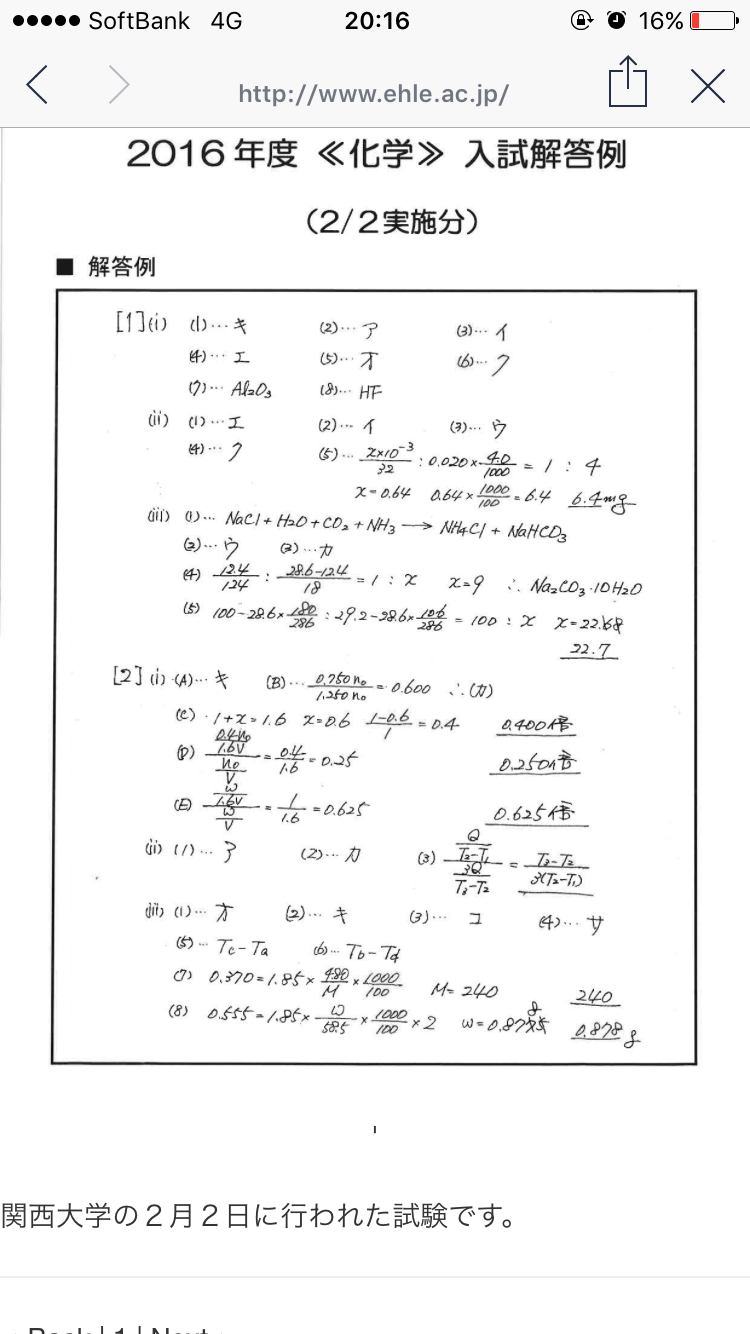 SoftBank 4G 20:16 16%
http://www.ehle.ac.jp/
2016年度 ≪化学≫ 入試解答例
（2/2実施分）
■ 解答例
[1](i) (1)… キ (2)… ア (3)… イ
(4)… エ (5)… オ (6)… ク
(7)… Al₂O₃ (8)… HF
(ii) (1)… エ (2)… イ (3)… ウ
(4)… ク (5)… x×10⁻³/32 : 0.020×4.0/1000 = 1 : 4
x=0.64 0.64×1000/100=6.4 6.4mg
(iii) (1)… NaCl+H₂O+CO₂+NH₃ → NH₄Cl+NaHCO₃
(2)… ウ (3)… カ
(4) 12.4/124 : 28.6-12.4/18 = 1 : x x=9 ∴ Na₂CO₃·10H₂O
(5) 100-28.6×180/286 : 29.2-28.6×106/286 = 100 : x x=22.68
22.7
[2](i)(A)… キ (B)… 0.750n₀/1.250n₀=0.600 ∴(カ)
(C) ·1+x=1.6 x=0.6 1-0.6/1=0.4 0.400倍
(D) 0.4n₀/1.6V / n₀/V = 0.4/1.6 = 0.25 0.250倍
(E) w/1.6V / w/V = 1/1.6 = 0.625 0.625倍
(ii) (1)… ア (2)… カ (3) Q/T₂-T₁ / 3Q/T₃-T₂ = T₃-T₂/3(T₂-T₁)
(iii) (1)… オ (2)… キ (3)… コ (4)… サ
(5)… Tc-Ta (6)… Tb-Td
(7) 0.370=1.85×480/M×1000/100 M=240 240
(8) 0.555=1.85×w/58.5×1000/100×2 w=0.877 8 0.878g
関西大学の２月２日に行われた試験です。
Back | 1 | Next